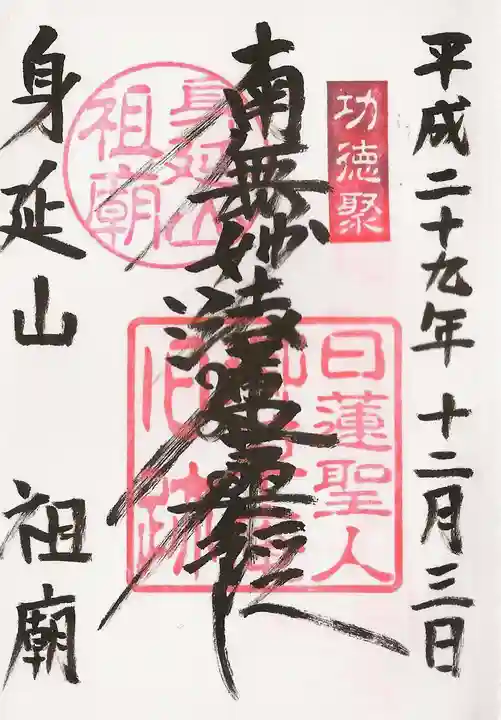 平成二十九年十二月三日
功徳聚
南無妙法蓮華経
身延山
祖廟
日蓮聖人
旧跡
身延山 祖廟